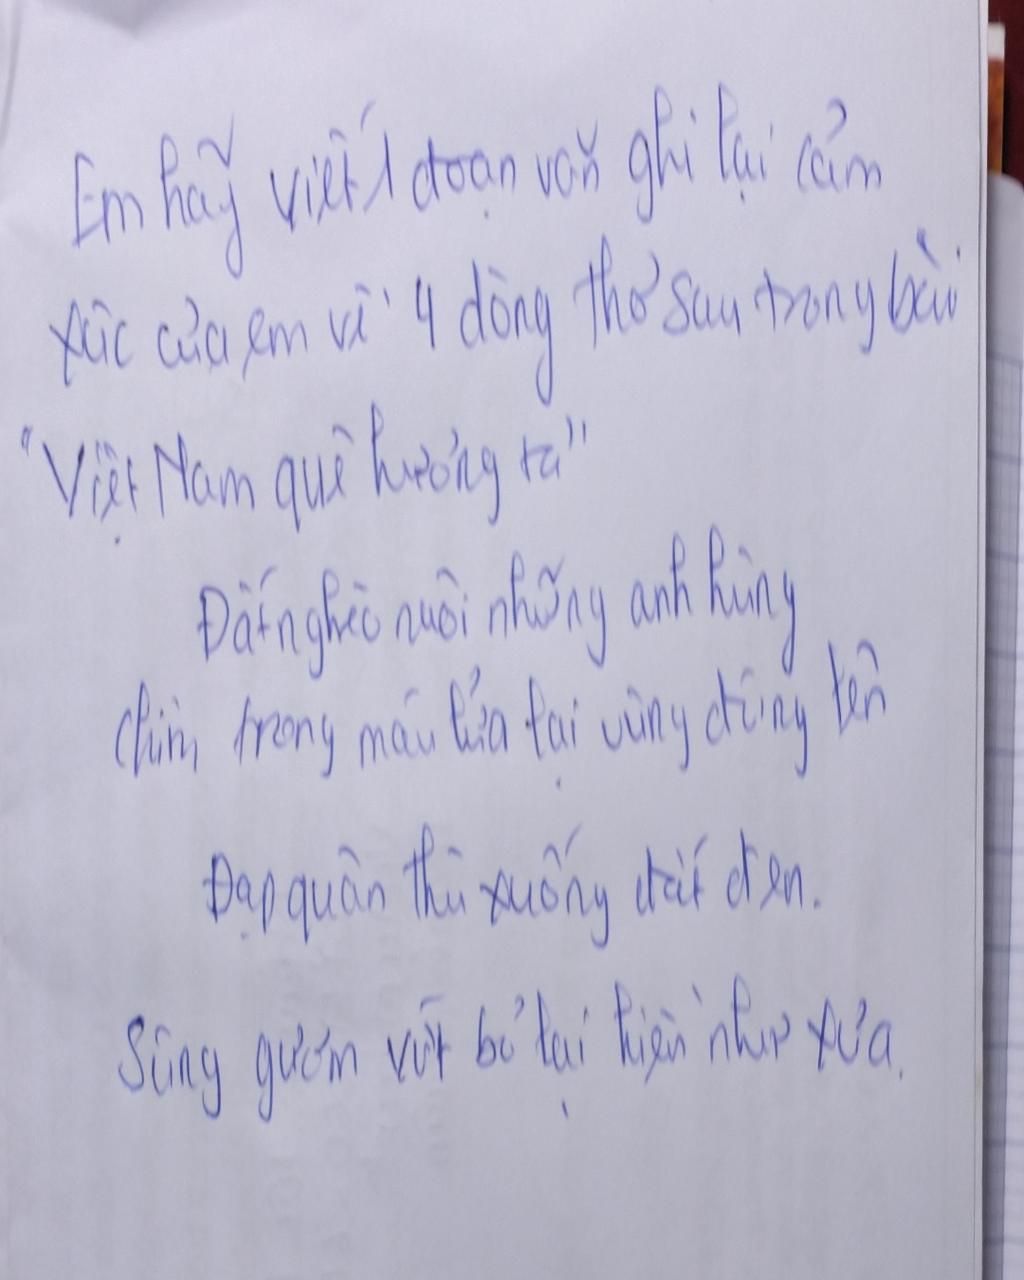 Em hãy viết 1 đoạn văn ghi lại cảm
xúc của em về 4 dòng thơ sau trong bài
"Việt Nam quê hương ta"
Đất nghèo nuôi những anh hùng
Chìm trong máu lửa lại vùng đứng lên
Đạp quân thù xuống đất đen.
Súng gươm vứt bỏ lại hiền như xưa.